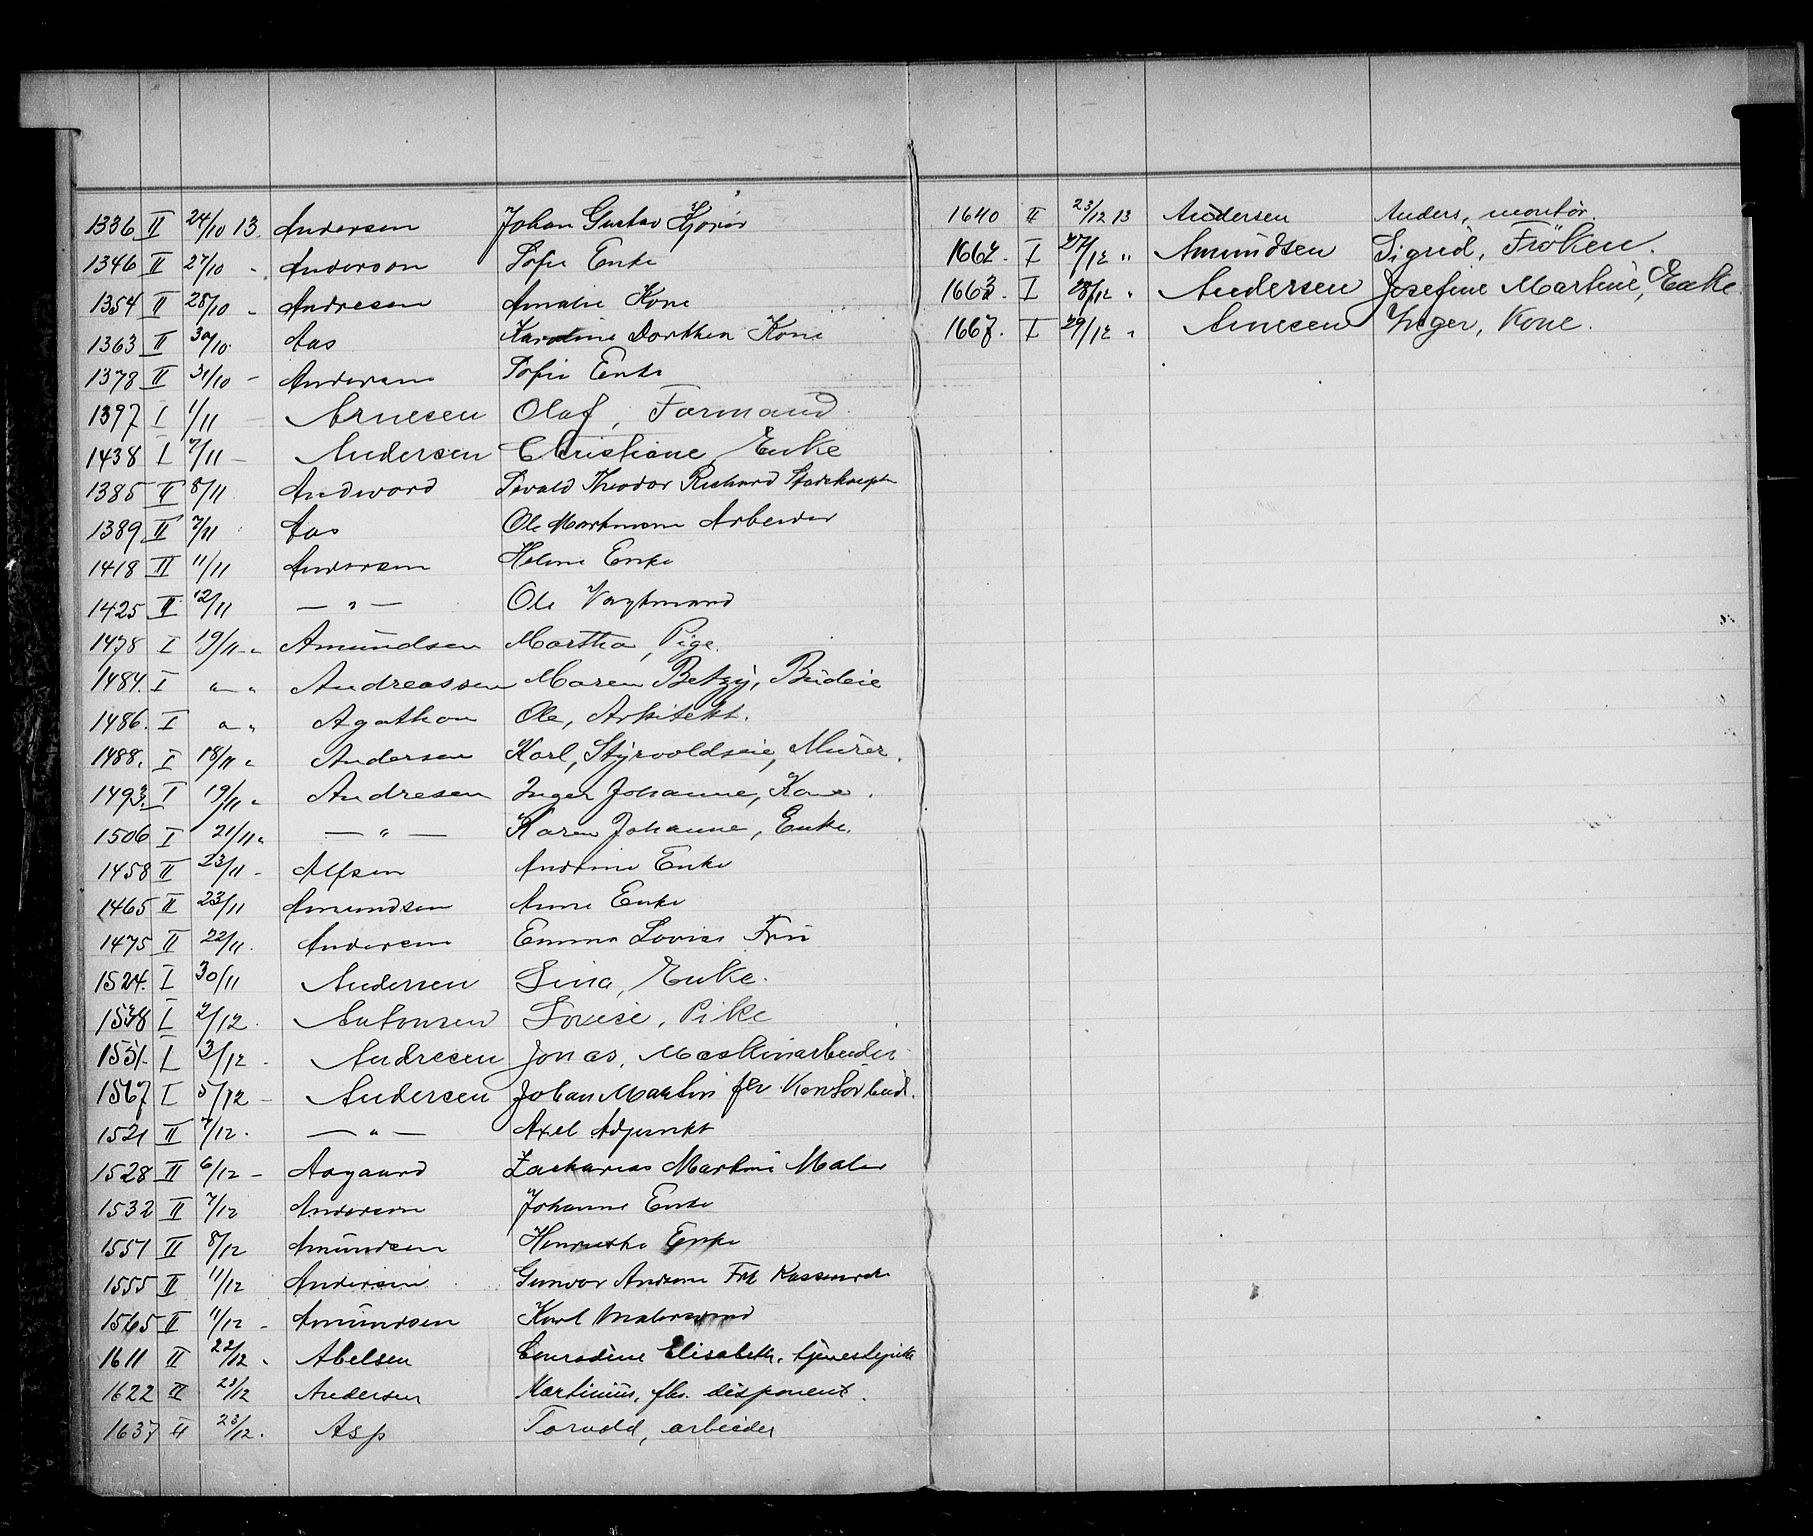 1336 II 24/10 13. Andersen Johan Gustav
1346 II 27/10 - Anderson Sofie Enke
1354 II 28/10 - Andresen Amalie Kone
1363 II 30/10 Aas Karoline Dorthea Kone
1378 II 31/10 - Andersen Sofie Enke
1397 I 1/11 - Arnesen Olaf, Formand.
1438 I 7/11 - Andersen Christiane, Enke
1385 II 8/11 Andword Sevald Theodor Richard
1389 II 7/11 Aas Ole Martinson Arbeider
1418 II 11/11 Andersen Helene Enke
1425 II 12/11 — " — Ole Vagtmand
1478 I 19/11 - " Amundsen Martha, Pige.
1484. I " - " Andreassen Maren Betzy, Budeie
1486. I " " Agathon Ole, Arkitekt.
1488. I 18/11 " Andersen Karl, Styrvoldseie, Murer.
1493. I 19/11 " Andresen Inger Johanne, Kone.
1506 I 21/11 " — " — Karen Johanne, Enke.
1458 II 23/11 - Alfsen Andrine Enke
1465 II 23/11 Amundsen Anne Enke
1475 II 22/11. Andersen Emma Lovise Fru
1524. I 30/11 Andersen Lina, Enke.
1538 I 2/12. Antonsen Lovise, Pike
1551. I 3/12 - Andresen Jonas, Maskinarbeider
1567 I 5/12 - Andersen Johan Martin fhv Kontorbud.
1521 II 7/12. — " — Axel Adjunkt
1528 II 6/12 - Aagaard Zacharias Martin Maler
1532 II 7/12 Andersen Johanne Enke
1551 II 8/12 Amundsen Henriette Enke
1555 II 11/12 Andersen Gunvor Andrene Frk
1565 II 11/12 - Amundsen Karl
1611 II 22/12 " Abelsen Conradine Elisabeth, tjenestepike
1622 II 23/12 Andersen Martinius, fhv. disponent.
1637 II 23/12. Asp Torvald, arbeider
1640 II 23/12 13 Andersen Anders, montör.
1662. I 27/12 " Amundsen Sigrid, Fröken.
1663. I 28/12 " Andersen Josefine Martine, Enke
1667. I 29/12 " Arnesen Inger, Kone.